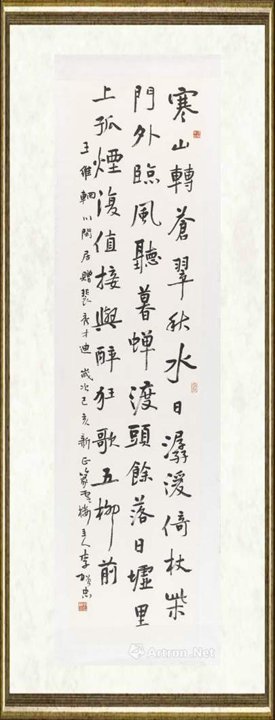 寒山轉蒼翠秋水日潺湲倚杖柴
門外臨風聽暮蟬渡頭餘落日墟里
上孤煙復值接輿醉狂歌五柳前
王維輞川閒居贈裴秀才迪 歲次己亥新正
Artron.Net